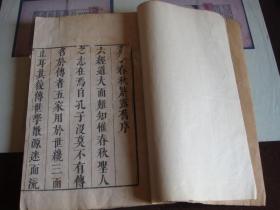 春秋繁露舊序
六經道大而難知惟春秋聖人
之志在焉自孔子沒莫不有傳
名於傳者五家用於世纔三而
止耳其後傳世學散源迷而流